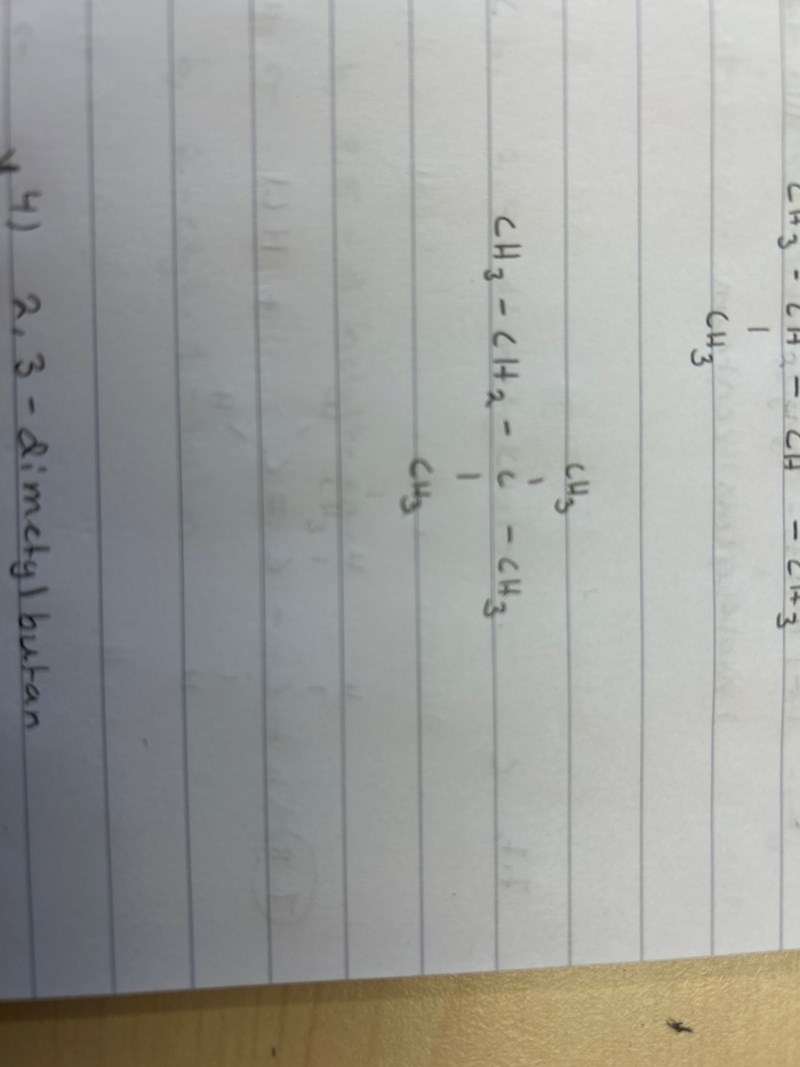 CH3 - CH2 - CH - CH3
|
CH3
CH3
|
CH3 - CH2 - C - CH3
|
CH3
4) 2,3-dimetylbutan